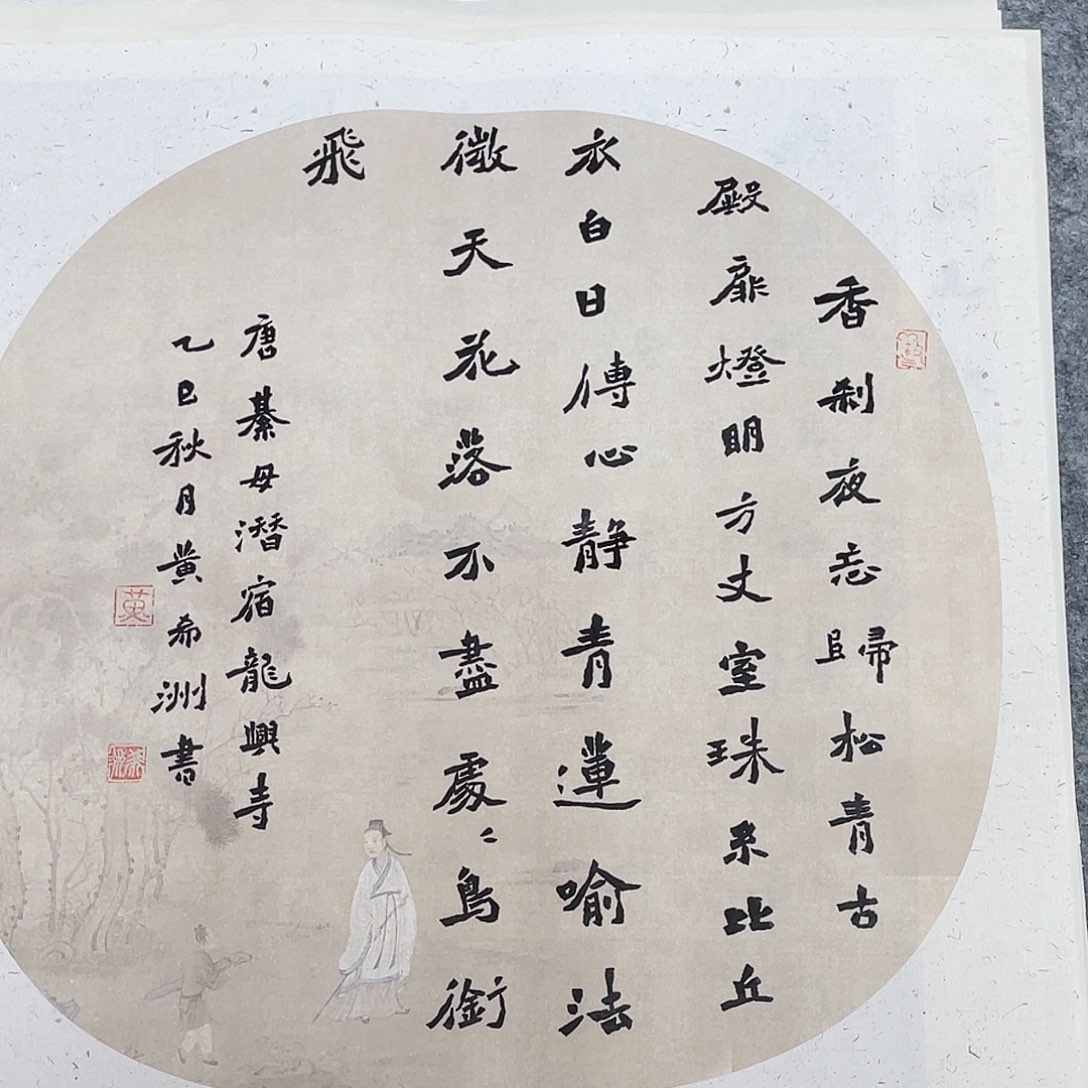 香刹夜忘歸松青古
殿扉燈明方丈室珠系比丘
衣白日傳心静青蓮喻法
微天花落不盡處〻鳥銜
飛
唐綦母潛宿龍興寺
乙巳秋月黄希洲書
黄